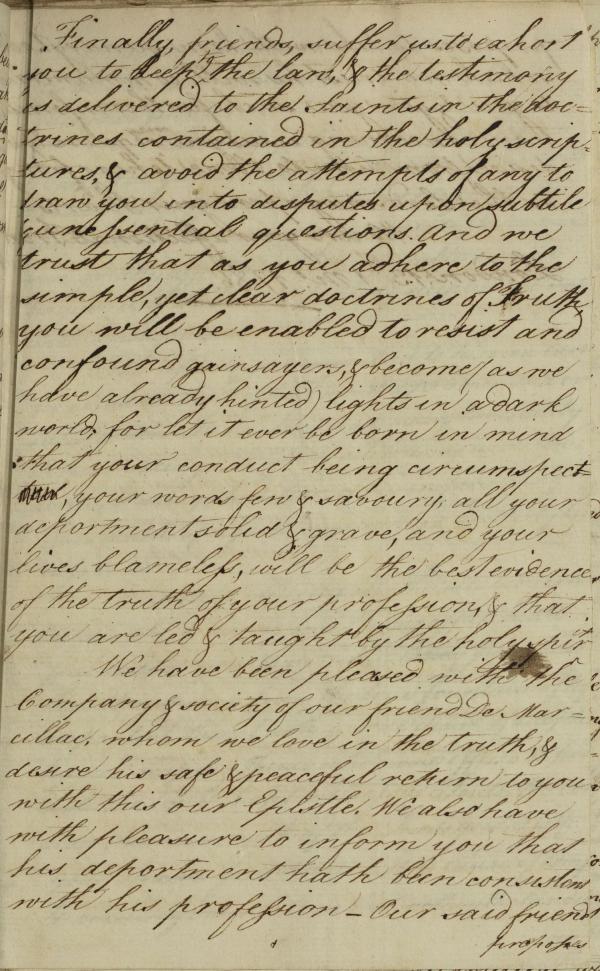 Finally, friends, suffer us to exhort
you to keep to the law, & the testimony
as delivered to the Saints in the doc=
trines contained in the holy scrip-
tures, & avoid the attempts of any to
draw you into disputes upon subtile
unessential questions. And we
trust that as you adhere to the
simple, yet clear doctrines of Truth,
you will be enabled to resist and
confound gainsayers, & become (as we
have already hinted) lights in a dark
world, for let it ever be born in mind
that your conduct being circumspect
your words few & savoury, all your
deportment solid & grave, and your
lives blameless, will be the best evidence
of the truth of your profession, & that
you are led & taught by the holy spirit
We have been pleased with the
Company & society of our friend De Mar=
cillac, whom we love in the truth, &
desire his safe & peaceful return to you
with this our Epistle. We also have
with pleasure to inform you that
his deportment hath been consistent
with his profession – Our said friend
proposes